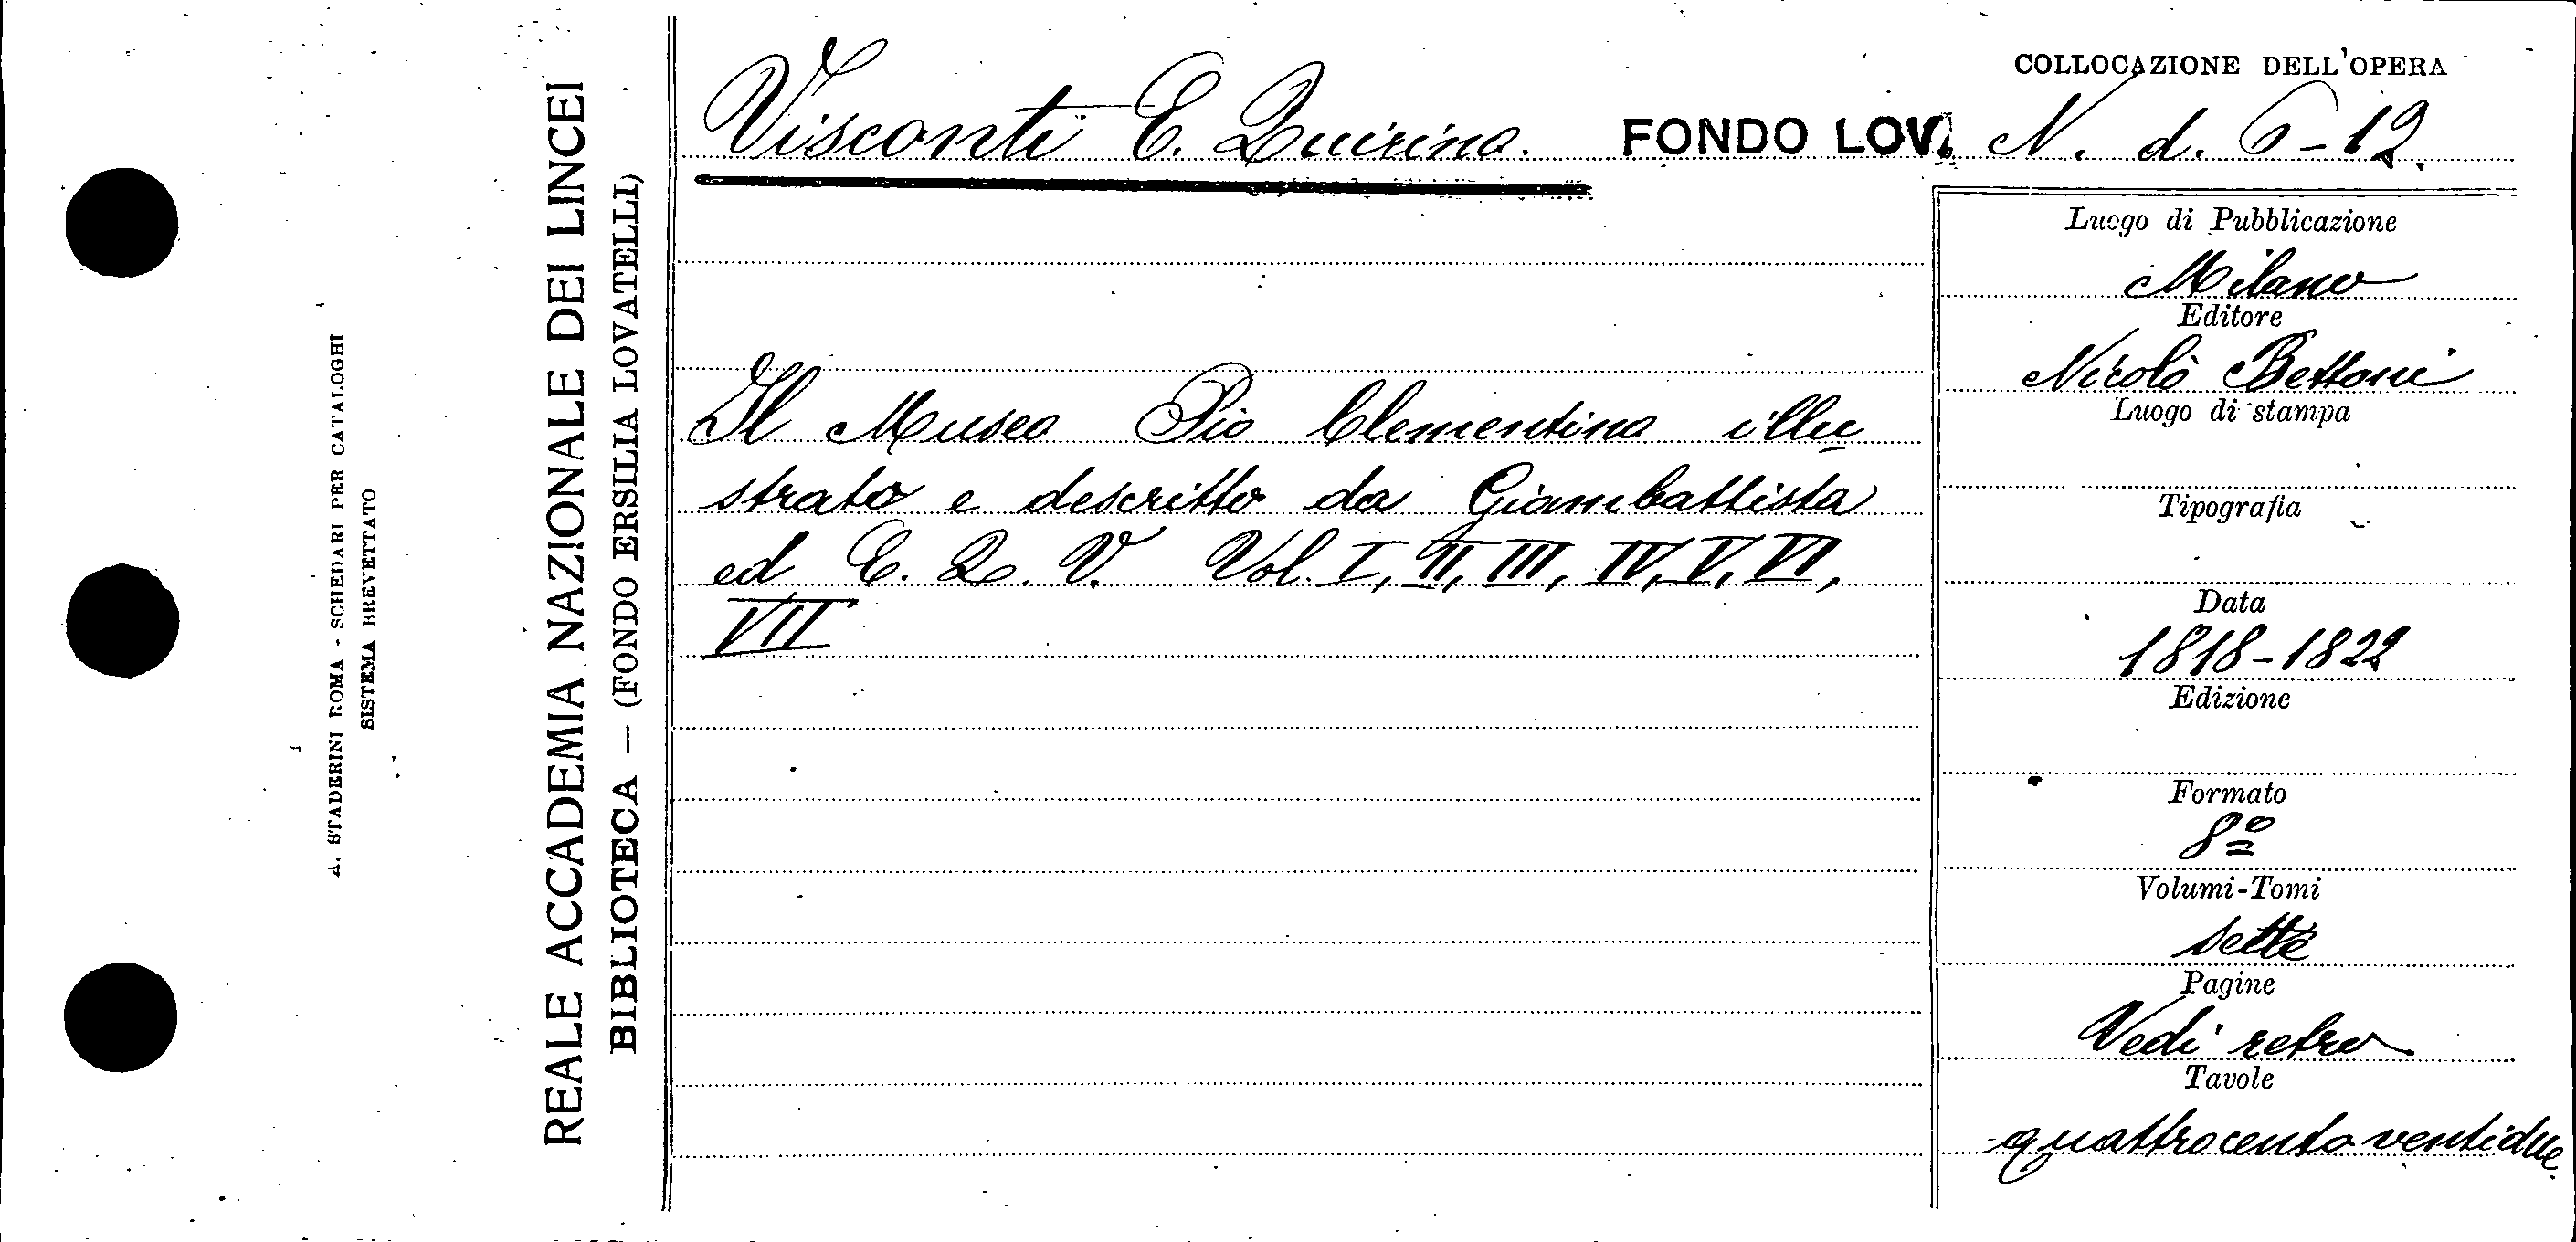 A. STADERINI ROMA - SCHEDARI PER CATALOGHI
SISTEMA BREVETTATO
REALE ACCADEMIA NAZIONALE DEI LINCEI
BIBLIOTECA — (FONDO ERSILIA LOVATELLI)
Visconti E. Quirino. FONDO LOV.
Il Museo Pio Clementino illu
strato e descritto da Giambattista
ed E. Q. V. Vol. I, II, III, IV, V, VI,
VII
COLLOCAZIONE DELL'OPERA
N. d. 6-12.
Luogo di Pubblicazione
Milano
Editore
Nicolò Bettoni
Luogo di stampa
Tipografia
Data
1818-1822
Edizione
Formato
8º
Volumi-Tomi
sette
Pagine
Vedi retro
Tavole
quattrocentoventidue